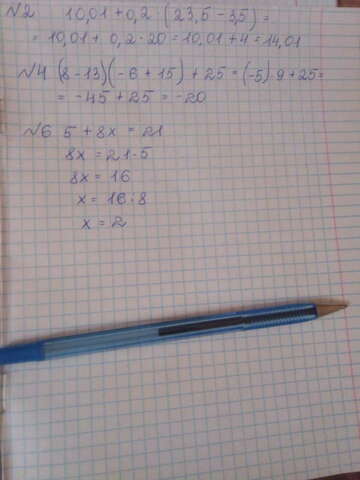 №2 10,01 + 0,2 · (23,5 - 3,5) =
= 10,01 + 0,2 · 20 = 10,01 + 4 = 14,01
№4 (8 - 13)(-6 + 15) + 25 = (-5) · 9 + 25 =
= -45 + 25 = -20
№6 5 + 8x = 21
8x = 21 - 5
8x = 16
x = 16 : 8
x = 2